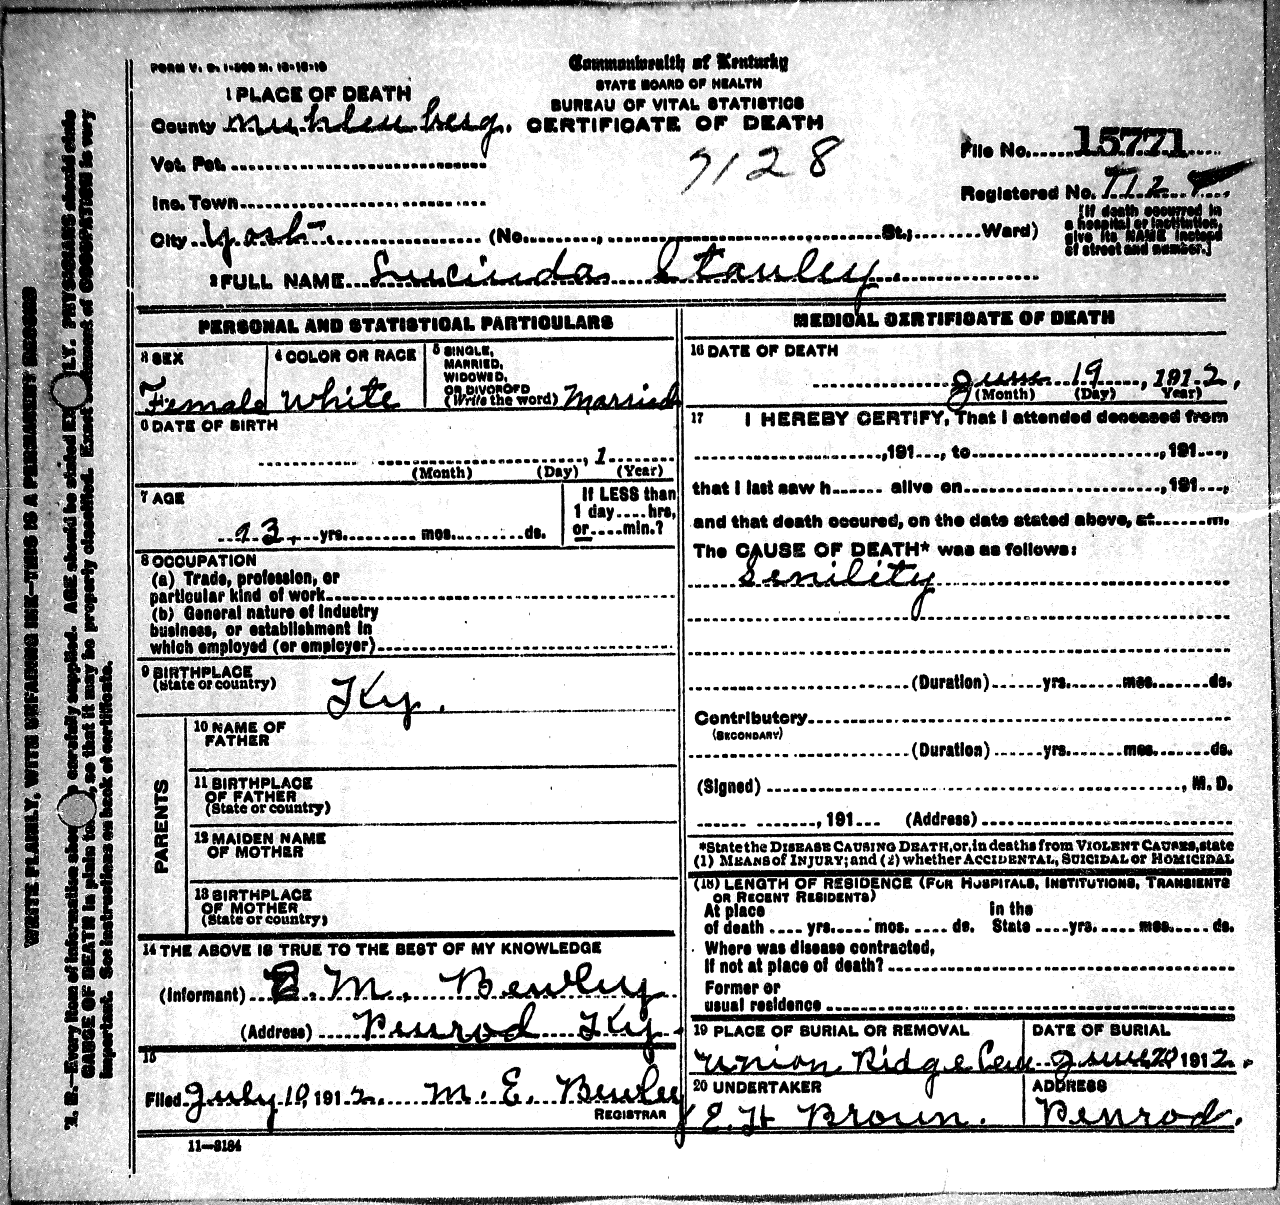 FORM V. S. 1-500 M. 10-10-10
Commonwealth of Kentucky
STATE BOARD OF HEALTH
BUREAU OF VITAL STATISTICS
CERTIFICATE OF DEATH
1 PLACE OF DEATH
County Muhlenberg.
Vot. Pct.
Inc. Town
City Yost (No. , St.; Ward)
7128
File No. 15771
Registered No.
[If death occurred in
a hospital or institution,
give its NAME instead
of street and number.]
2 FULL NAME Lucinda Stanley.
PERSONAL AND STATISTICAL PARTICULARS
3 SEX
Female
4 COLOR OR RACE
White
5 SINGLE,
MARRIED,
WIDOWED,
OR DIVORCED
(Write the word) Married
6 DATE OF BIRTH
, 1
(Month) (Day) (Year)
7 AGE
93, yrs. mos. ds.
If LESS than
1 day hrs,
or min.?
8 OCCUPATION
(a) Trade, profession, or
particular kind of work
(b) General nature of Industry
business, or establishment in
which employed (or employer)
9 BIRTHPLACE
(State or country)
Ky.
PARENTS
10 NAME OF
FATHER
11 BIRTHPLACE
OF FATHER
(State or country)
12 MAIDEN NAME
OF MOTHER
13 BIRTHPLACE
OF MOTHER
(State or country)
14 THE ABOVE IS TRUE TO THE BEST OF MY KNOWLEDGE
(Informant) E. M. Bewley
(Address) Penrod Ky.
15
Filed July 10, 1912. M. E. Bewley
REGISTRAR
11—3184
MEDICAL CERTIFICATE OF DEATH
16 DATE OF DEATH
June 19, 1912,
(Month) (Day) Year)
17 I HEREBY CERTIFY, That I attended deceased from
, 191 , to , 191 ,
that I last saw h alive on , 191 ,
and that death occured, on the date stated above, at m.
The CAUSE OF DEATH* was as follows:
Senility
(Duration) yrs. mos. ds.
Contributory
(SECONDARY)
(Duration) yrs. mos. ds.
(Signed) , M. D.
, 191 (Address)
*State the DISEASE CAUSING DEATH, or, in deaths from VIOLENT CAUSES, state
(1) MEANS of INJURY; and (2) whether ACCIDENTAL, SUICIDAL or HOMICIDAL
(18) LENGTH OF RESIDENCE (FOR HOSPITALS, INSTITUTIONS, TRANSIENTS
OR RECENT RESIDENTS)
At place In the
of death yrs. mos. ds. State yrs. mos. ds.
Where was disease contracted,
If not at place of death?
Former or
usual residence
19 PLACE OF BURIAL OR REMOVAL
Union Ridge Cem
DATE OF BURIAL
June 20 1912.
20 UNDERTAKER
E. H Brown.
ADDRESS
Penrod.
WRITE PLAINLY, WITH UNFADING INK—THIS IS A PERMANENT RECORD
N. B.—Every item of information should be carefully supplied. AGE should be stated EXACTLY. PHYSICIANS should state
CAUSE OF DEATH in plain terms, so that it may be properly classified. Exact statement of OCCUPATION is very
important. See instructions on back of certificate.